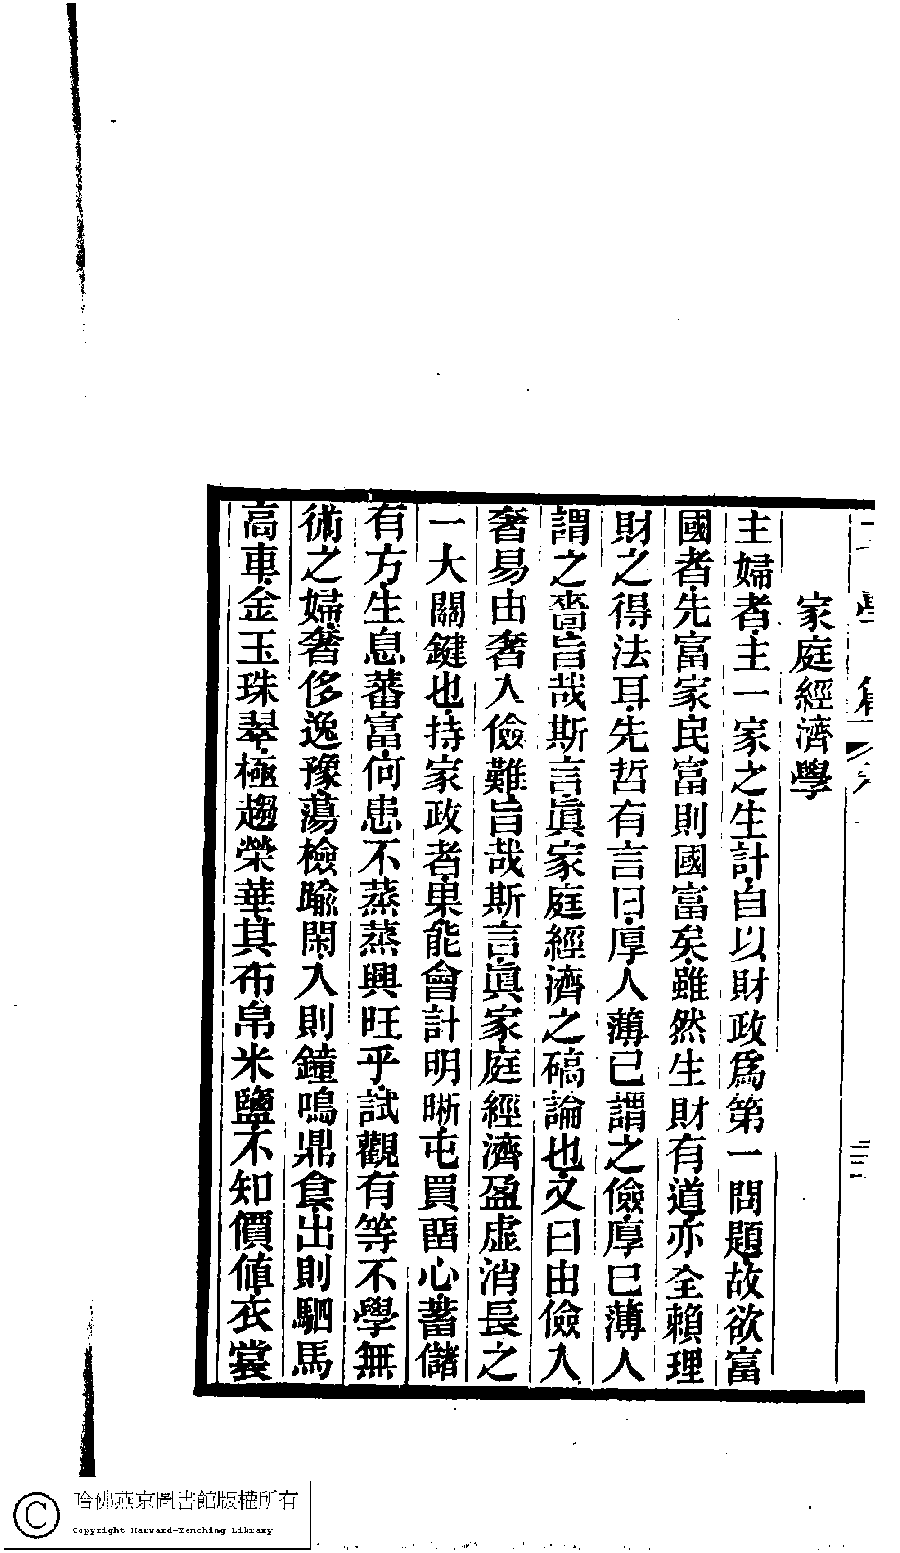 家庭經濟學
主婦者主一家之生計自以財政爲第一問題故欲富
國者先富家民富則國富矣雖然生財有道亦全賴理
財之得法耳先哲有言曰厚人薄己謂之儉厚己薄人
謂之嗇旨哉斯言眞家庭經濟之碻論也又曰由儉入
奢易由奢入儉難旨哉斯言眞家庭經濟盈虛消長之
一大關鍵也持家政者果能會計明晰屯買畱心蓄儲
有方生息蕃富何患不蒸蒸興旺乎試觀有等不學無
術之婦奢侈逸豫蕩檢踰閑入則鐘鳴鼎食出則駟馬
高車金玉珠翠極趨榮華其布帛米鹽不知價値衣裳
哈佛燕京圖書館版權所有
Copyright Harvard-Yenching Library